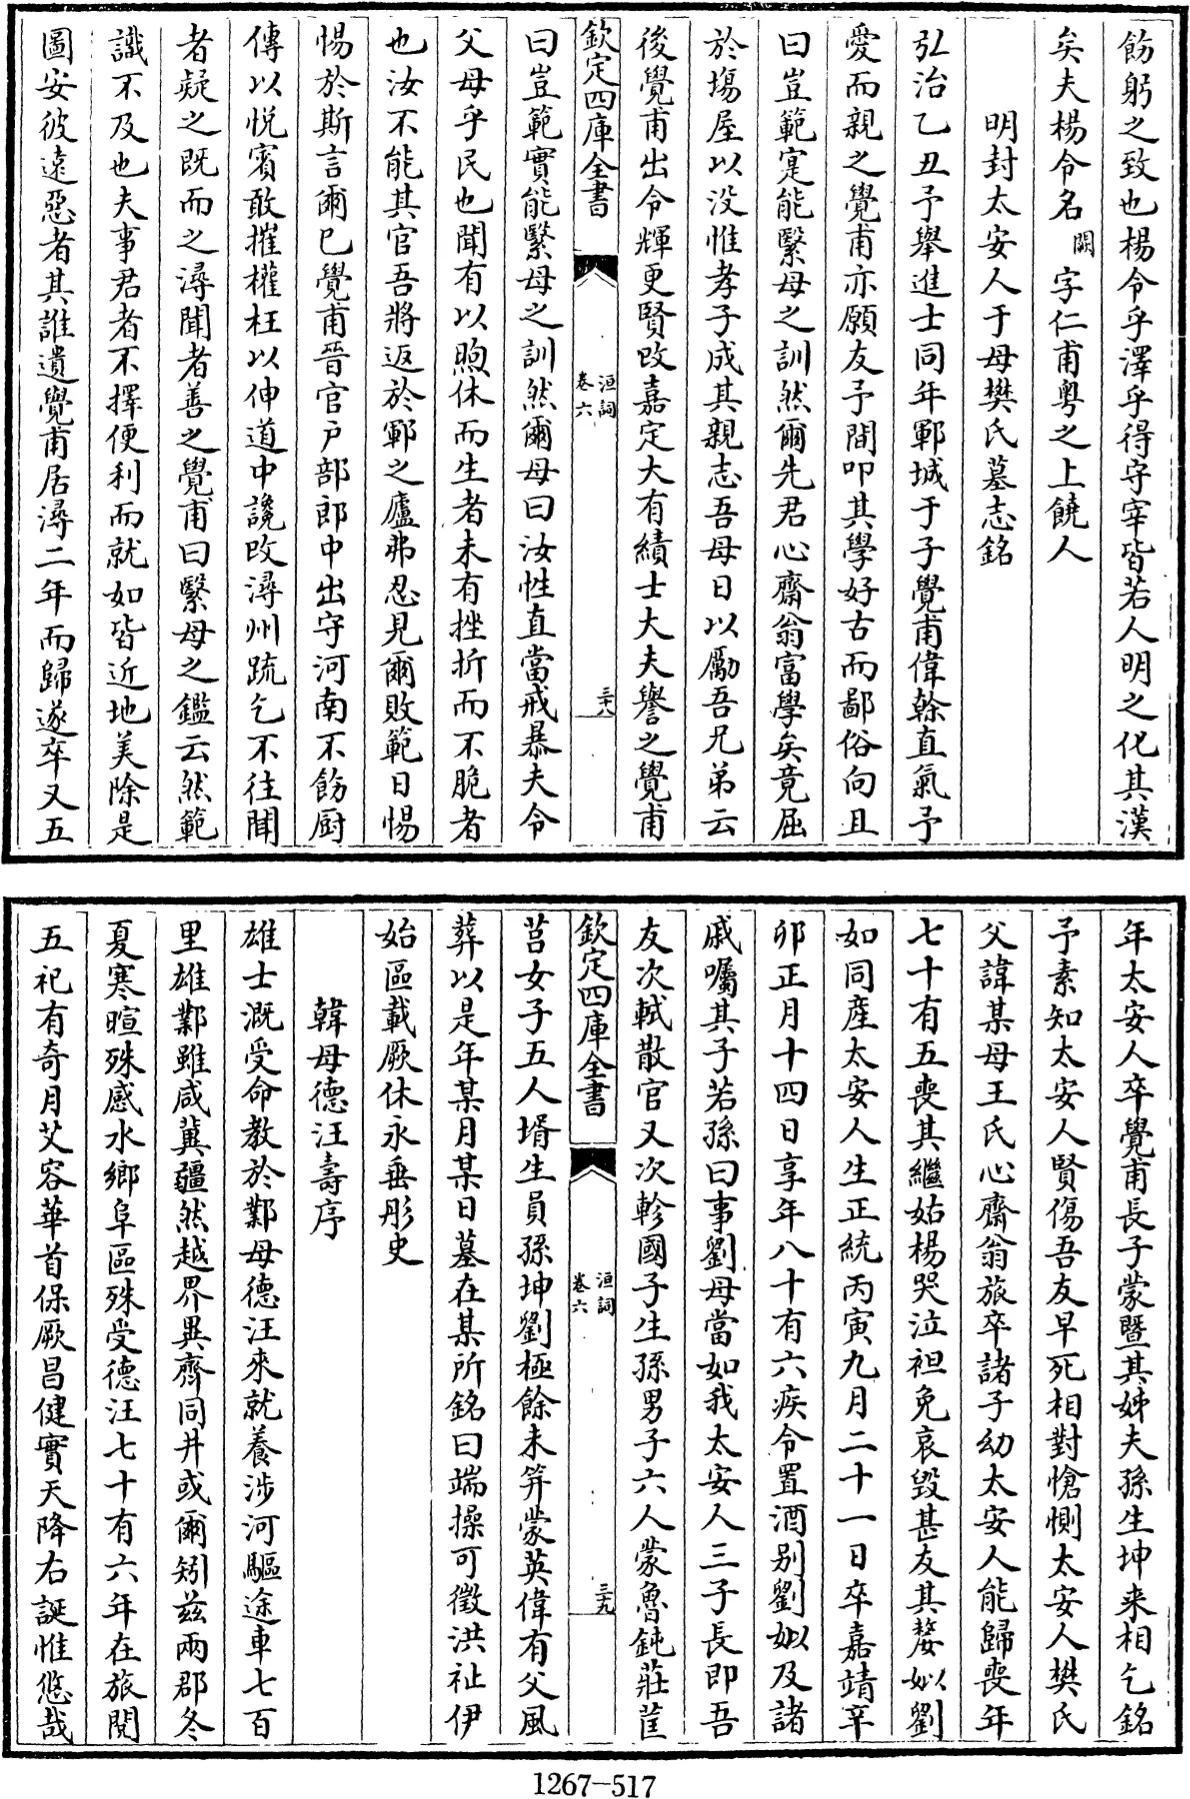 飭躬之致也楊令乎澤乎得守宰皆若人明之化其漢
矣夫楊令名闕字仁甫粤之上饒人
明封太安人于母樊氏墓志銘
弘治乙丑予舉進士同年鄆城于子覺甫偉榦直氣予
愛而親之覺甫亦願友予間叩其學好古而鄙俗向且
曰豈範寔能繄母之訓然爾先君心齋翁富學矣竟屈
於塲屋以没惟孝子成其親志吾母日以勵吾兄弟云
後覺甫出令輝更賢改嘉定大有績士大夫譽之覺甫
欽定四庫全書
洹詞
卷六
三十八
曰豈範實能繄母之訓然爾母曰汝性直當戒暴夫令
父母乎民也聞有以煦休而生者未有挫折而不脆者
也汝不能其官吾將返於鄆之廬弗忍見爾敗範日惕
惕於斯言爾已覺甫晉官户部郎中出守河南不飭厨
傳以悦賓敢摧權枉以伸道中讒改潯州疏乞不往聞
者疑之既而之潯聞者善之覺甫曰繄母之鑑云然範
識不及也夫事君者不擇便利而就如皆近地美除是
圖安彼遠惡者其誰遺覺甫居潯二年而歸遂卒又五
年太安人卒覺甫長子蒙暨其姊夫孫生坤来相乞銘
予素知太安人賢傷吾友早死相對愴惻太安人樊氏
父諱某母王氏心齋翁旅卒諸子幼太安人能歸喪年
七十有五喪其繼姑楊哭泣袒免哀毁甚友其嫠姒劉
如同産太安人生正統丙寅九月二十一日卒嘉靖辛
卯正月十四日享年八十有六疾令置酒别劉姒及諸
戚囑其子若孫曰事劉母當如我太安人三子長即吾
友次軾散官又次軫國子生孫男子六人蒙魯鈍莊莒
欽定四庫全書
洹詞
卷六
三十九
莒女子五人壻生員孫坤劉極餘未笄蒙英偉有父風
葬以是年某月某日墓在某所銘曰端操可徵洪祉伊
始區載厥休永垂彤史
韓母德汪壽序
雄士溉受命教於鄴母德汪來就養涉河驅途車七百
里雄鄴雖咸冀疆然越界異齊同井或爾矧兹兩郡冬
夏寒暄殊感水鄉阜區殊受德汪七十有六年在旅閲
五祀有奇月艾容華首保厥昌健實天降右誕惟悠哉
1267-517